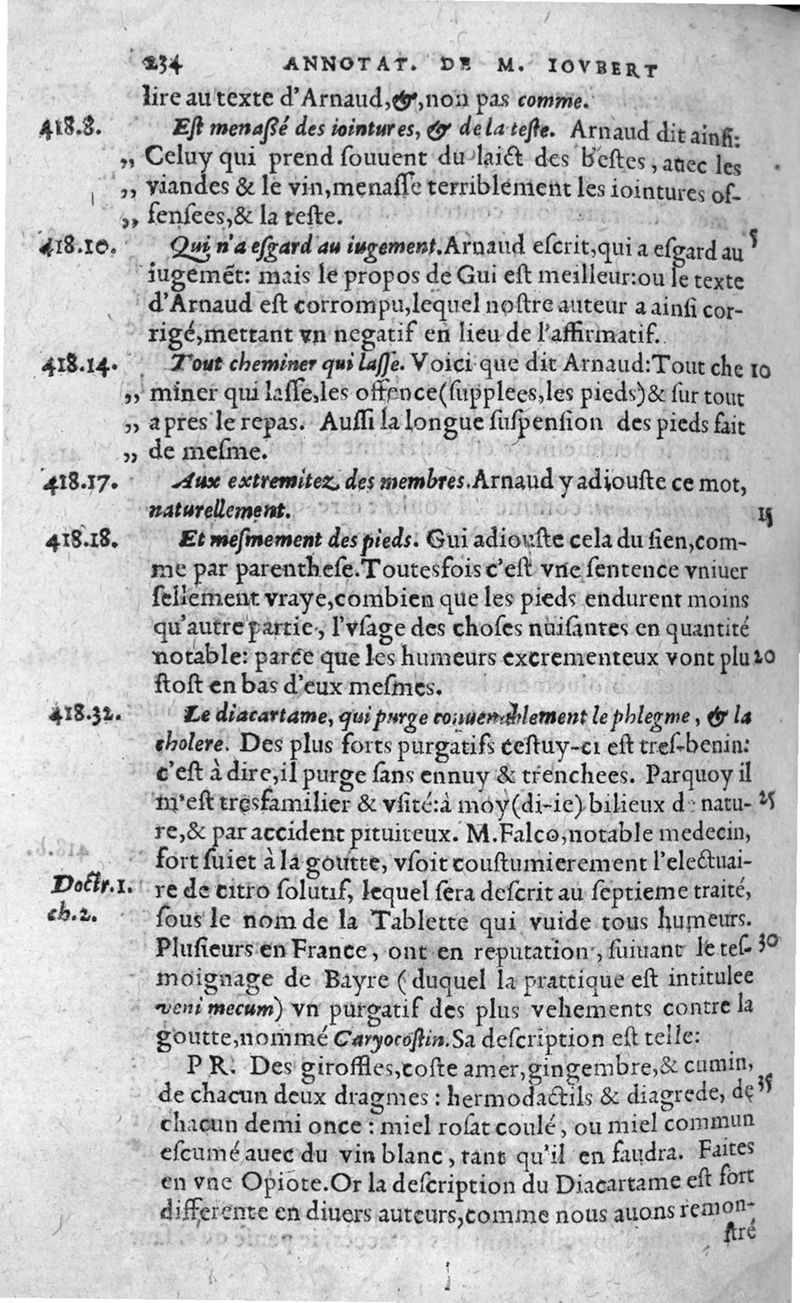 234 ANNOTAT. DE M. IOVBERT
lire au texte d'Arnaud,&,non pas comme.
418.8. Est menaßé des iointures, & de la teste. Arnaud dit ainsi:
„ Celuy qui prend souuent du laict des bestes, auec les
„ viandes & le vin,menasse terriblement les iointures of-
„ fensees,& la teste.
418.10. Qui n'a esgard au iugement.Arnaud escrit,qui a esgard au 5
iugemẽt: mais le propos de Gui est meilleur:ou le texte
d'Arnaud est corrompu,lequel nostre auteur a ainsi cor-
rigé,mettant vn negatif en lieu de l'affirmatif.
418.14. Tout cheminer qui lasse. Voici que dit Arnaud:Tout che 10
„ miner qui lasse,les offence(supplees,les pieds)& sur tout
„ apres le repas. Aussi la longue suspension des pieds fait
„ de mesme.
418.17. Aux extremitez des membres.Arnaud y adiouste ce mot,
naturellement. 15
418.18. Et mesmement des pieds. Gui adiouste cela du sien,com-
me par parenthese.Toutesfois c'est vne sentence vniuer
sellement vraye,combien que les pieds endurent moins
qu'autre partie, l'vsage des choses nuisantes en quantité
notable: parce que les humeurs excrementeux vont plu 20
stost en bas d'eux mesmes.
418.32. Le diacartame, qui purge conuenablement le phlegme, & la
cholere. Des plus forts purgatifs cestuy-ci est tres-benin:
c'est à dire,il purge sans ennuy & trenchees. Parquoy il
m'est tresfamilier & vsité:à moy(di-ie) bilieux de natu- 25
re,& par accident pituiteux. M.Falco,notable medecin,
fort suiet à la goutte, vsoit coustumierement l'electuai-
Doctr.1. re de citro solutif, lequel sera descrit au septieme traité,
ch.2. sous le nom de la Tablette qui vuide tous humeurs.
Plusieurs en France, ont en reputation, suiuant le tes- 30
moignage de Bayre (duquel la prattique est intitulee
veni mecum) vn purgatif des plus vehements contre la
goutte,nommé Caryocostin.Sa description est telle:
PR. Des giroffles,coste amer,gingembre,& cumin,
de chacun deux dragmes : hermodactils & diagrede, de 35
chacun demi once : miel rosat coulé, ou miel commun
escumé auec du vin blanc, tant qu'il en faudra. Faites
en vne Opiote.Or la description du Diacartame est fort
differente en diuers auteurs,comme nous auons remon-
stré